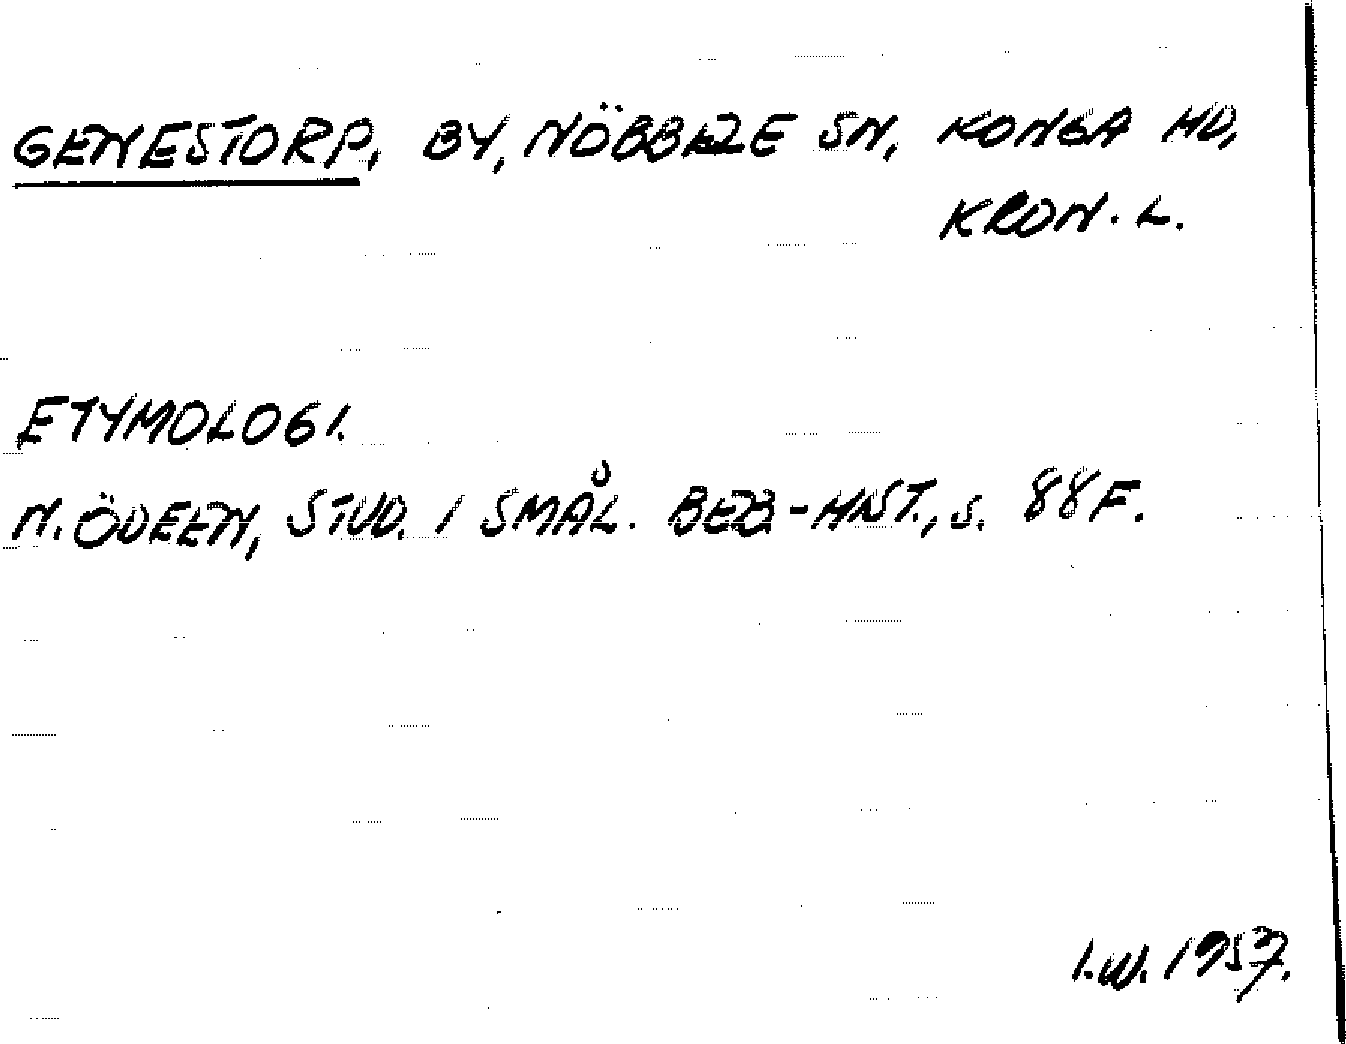 GENESTORP, BY, NÖBBELE SN, KONGA HD,
KRON. L.
ETYMOLOGI.
N. ÖDEEN, STUD. I SMÅL. BEB.-HIST., S. 88 F.
I.W. 1957.